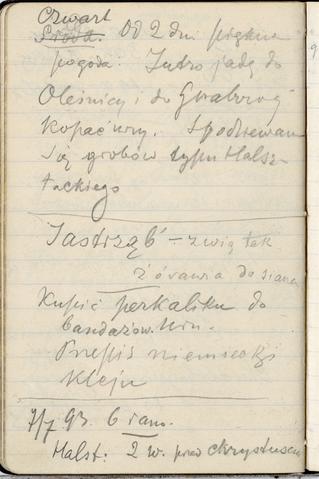 Czwart
Środa. Od 2 dni piękna
pogoda. Jutro jadę do
Oleśnicy i do Graborog
Kopać urny. Spodziewam
się grobów typu Halsz-
tackiego
Jastrząb – związek
żórawia do siana
Kupić perkaliku do
bandażów. urn.
Przepis niemiecki
kleju
7/7 93. 6 rano.
Halst. 2 w. przed Chrystusem